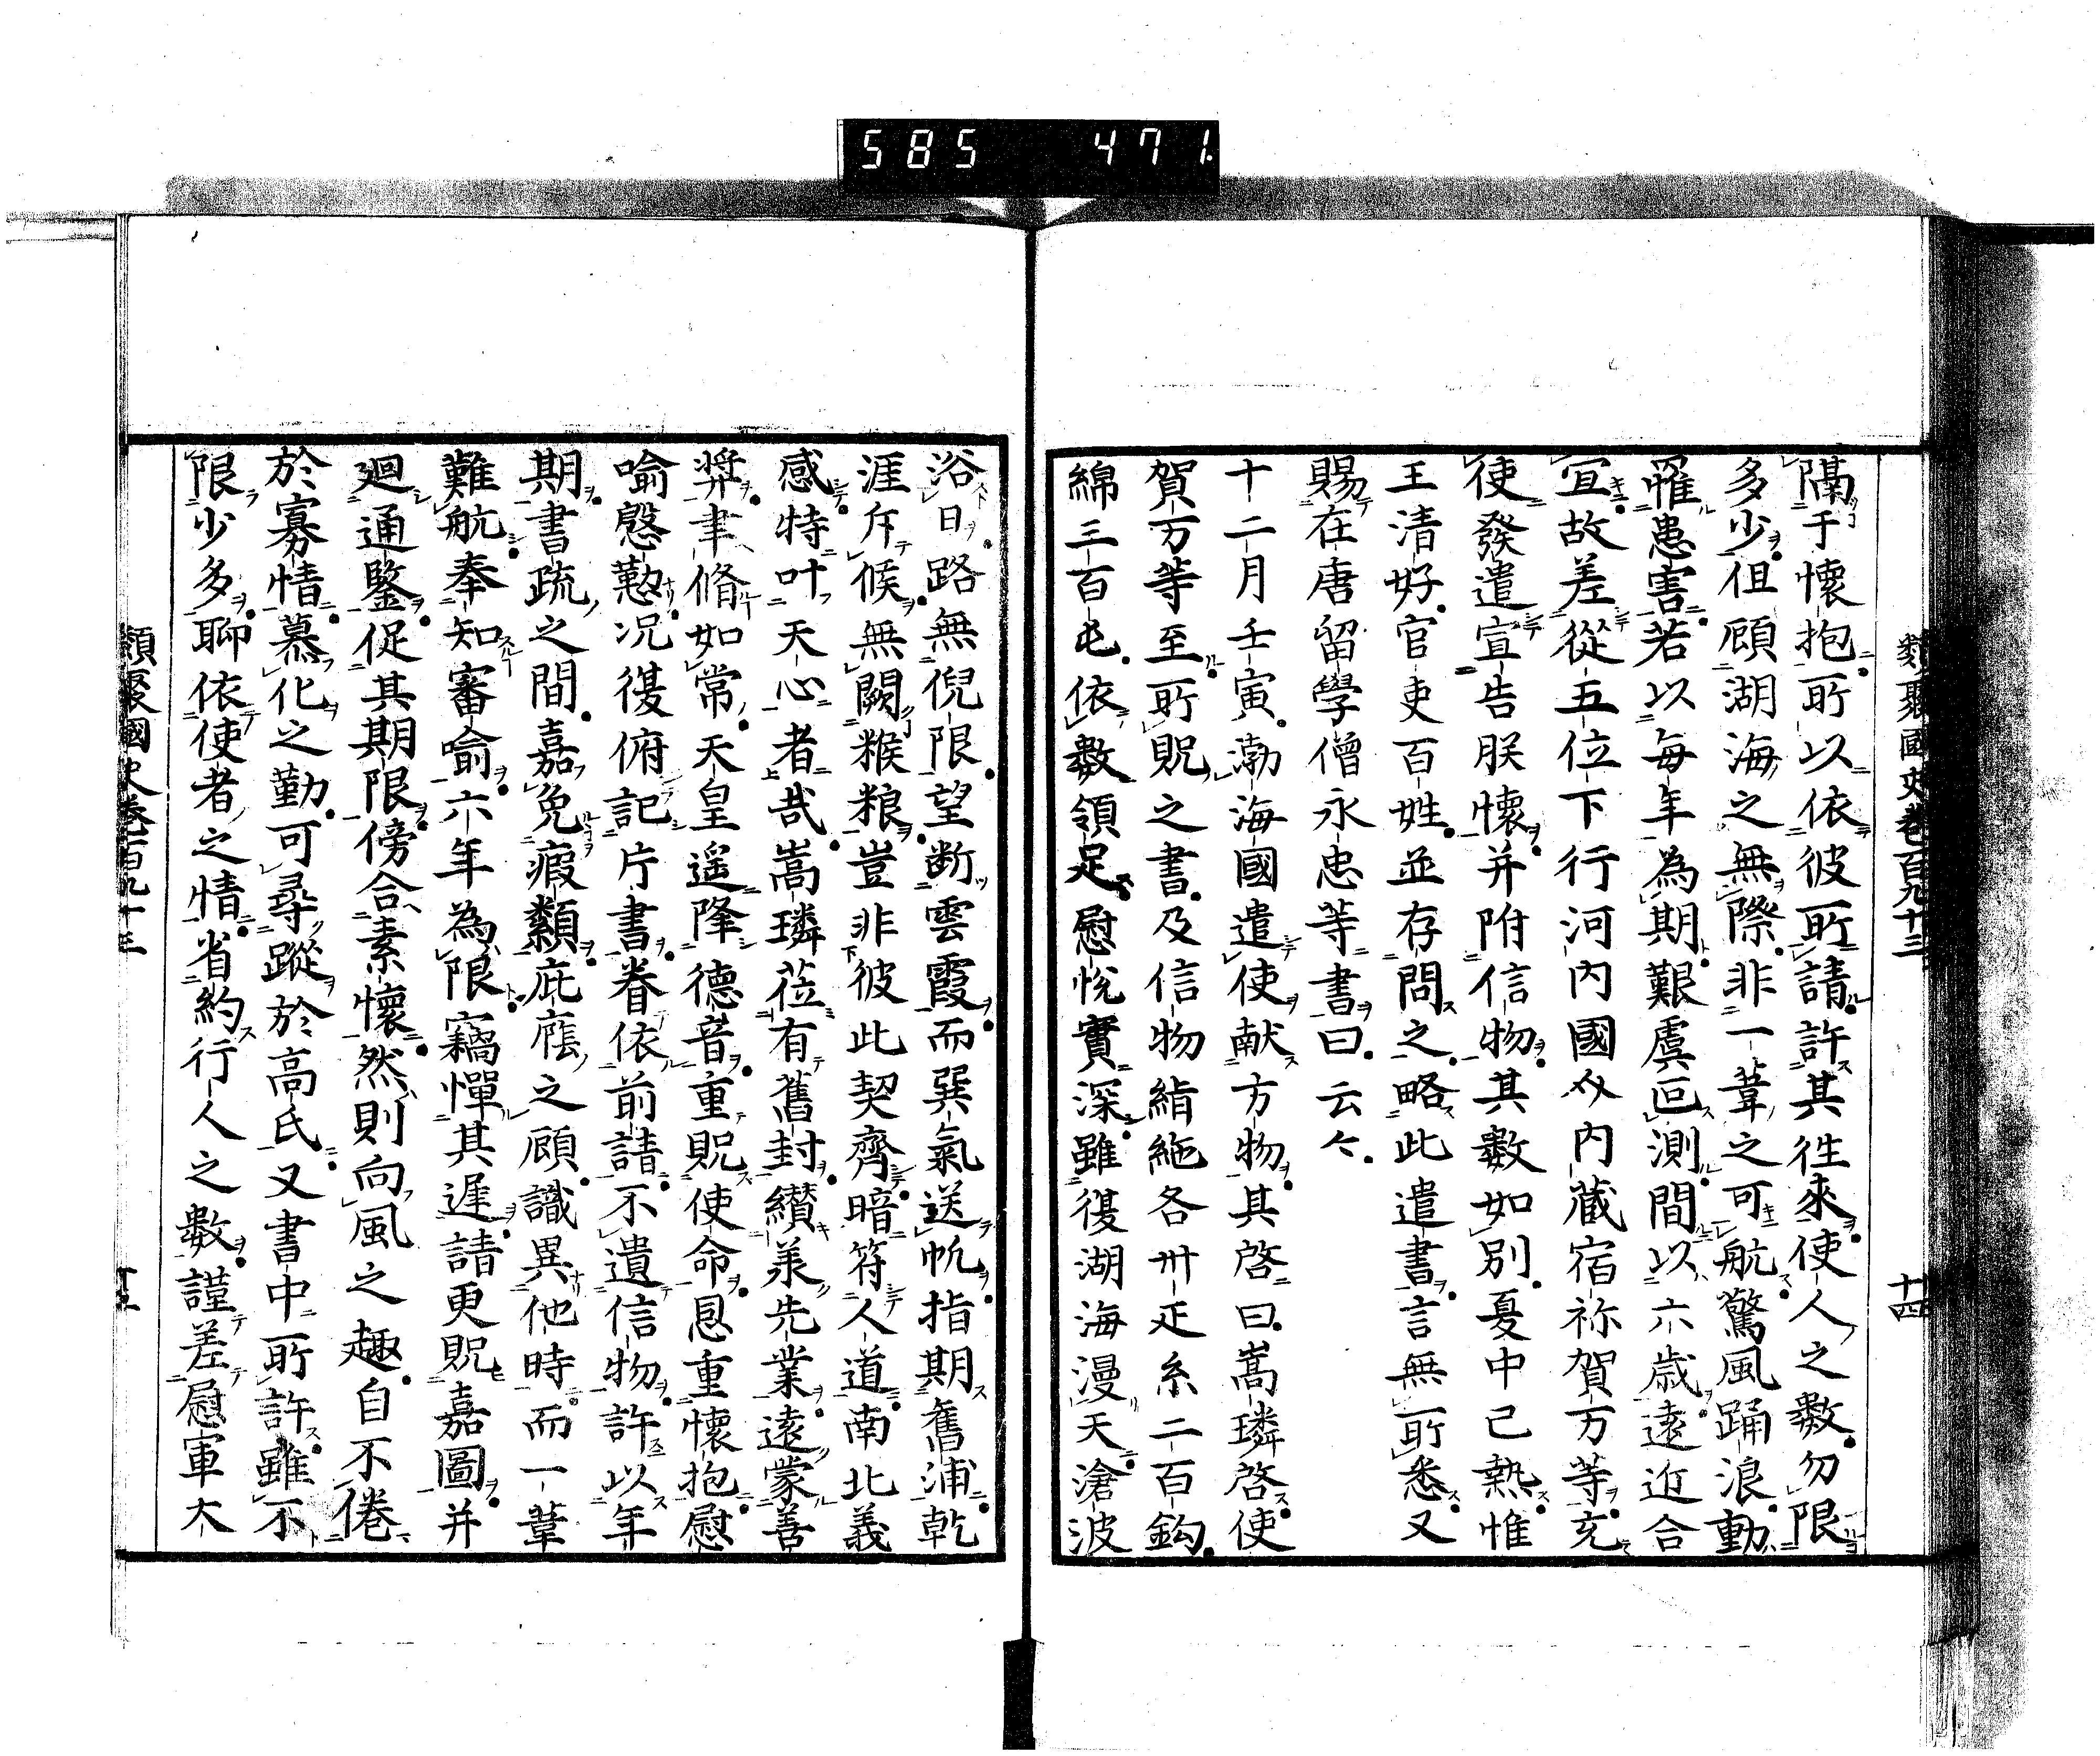 585 471
類聚國史卷百九十三 十四
隔于懷抱所以依彼所請許其往來使人之數勿限
多少但顧湖海之無際非一葦之可航驚風踊浪動
罹患害若以每年為期艱虞叵測間以六歲遠近合
宜故差從五位下行河內國介內藏宿祢賀万等充
使發遣宣告朕懷并附信物其數如別夏中已熱惟
王清好官吏百姓並存問之略此遣書言無所悉又
賜在唐留學僧永忠等書曰云々
十二月壬寅渤海國遣使献方物其啓曰嵩璘啓使
賀万等至所貺之書及信物絹絁各卅疋糸二百鈎
綿三百屯依數領足慰悅實深雖復湖海漫天滄波
浴日路無倪限望断雲霞而巽氣送帆指期舊浦乾
涯斥候無闕糇粮豈非彼此契齊暗符人道南北義
感特叶天心者哉嵩璘莅有舊封纉羕先業遠蒙善
奬聿脩如常天皇遥降德音重貺使命恩重懷抱慰
喻慇懃况復俯記片書眷依前請不遺信物許以年
期書疏之間嘉免瑕纇庇廕之顧識異他時而一葦
難航奉知審喻六年為限竊憚其遅請更貺嘉圖并
廻通鑒促其期限傍合素懷然則向風之趣自不倦
於寡情慕化之勤可尋蹤於高氏又書中所許雖不
限少多聊依使者之情省約行人之數謹差慰軍大
類聚國史卷百九十三